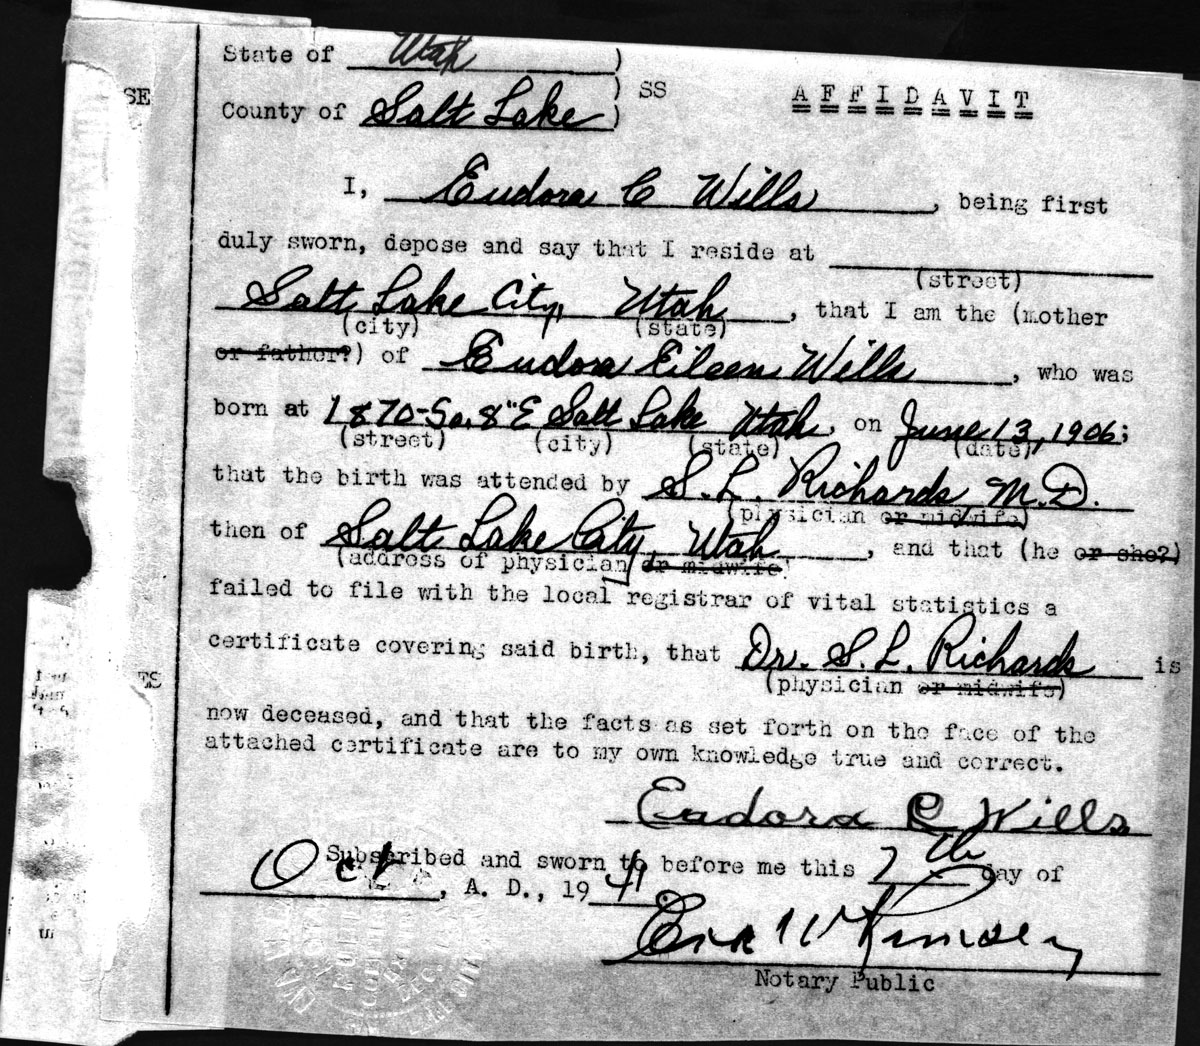 State of Utah )
) SS AFFIDAVIT
County of Salt Lake )
I, Eudora C Wills, being first
duly sworn, depose and say that I reside at
(street)
Salt Lake City, Utah, that I am the (mother
(city) (state)
or father?) of Eudora Eileen Wills, who was
born at 1870-So. 8" E Salt Lake Utah, on June 13, 1906;
(street) (city) (state) (date)
that the birth was attended by S. L. Richards, M.D.
(physician or midwife)
then of Salt Lake City, Utah, and that (he or she?)
(address of physician or midwife)
failed to file with the local registrar of vital statistics a
certificate covering said birth, that Dr. S. L. Richards is
(physician or midwife)
now deceased, and that the facts as set forth on the face of the
attached certificate are to my own knowledge true and correct.
Eudora C Wills
Subscribed and sworn to before me this 7th day of
Oct, A. D., 1941
Notary Public
SE
ES